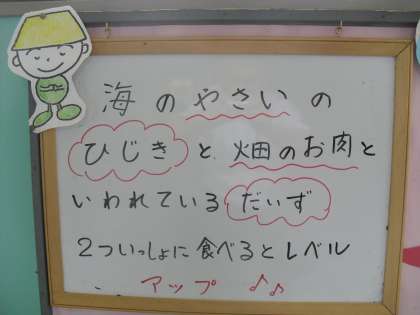 海のやさいの
ひじきと畑のお肉と
いわれているだいず
2ついっしょに食べるとレベル
アップ♪♫